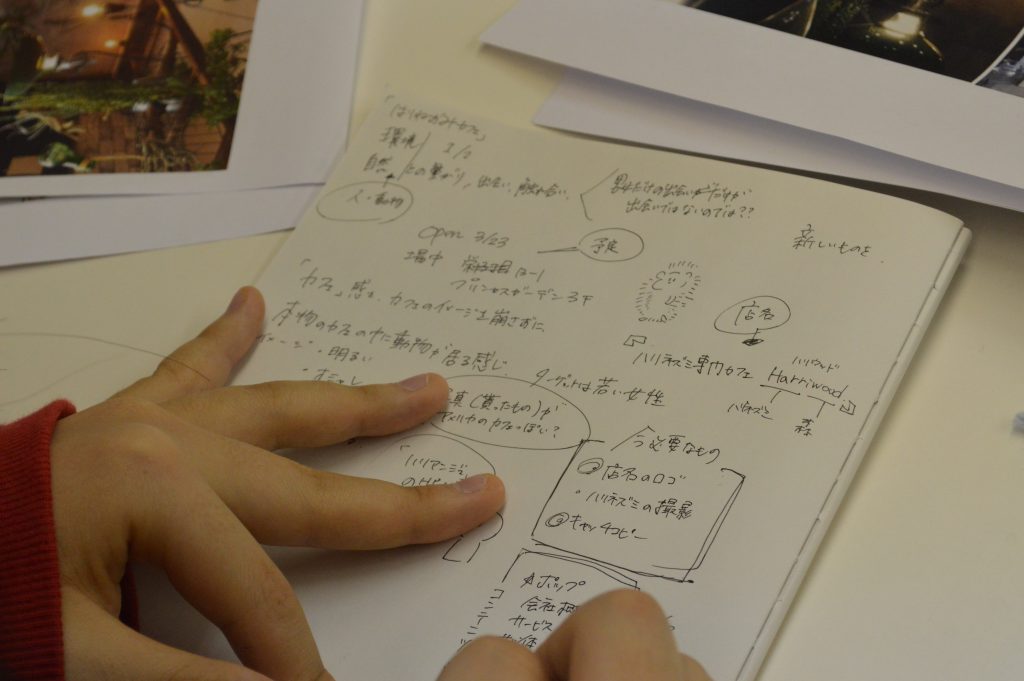 「はりねずみカフェ」
環境
自然との繋がり、出会い、触れ合い。
人・動物
男女だけの出会いがだけが
出会いではないのでは??
新しいものを
open 3/23
予定
場中 栄3丁目 12-1
プリンセスガーデン 3F
「カフェ」感を、カフェのイメージを崩さずに、
本物のカフェの中に動物が居る感じ。
イメージ・明るい
・オシャレ
ターゲットは若い女性
店名
「ハリネズミ専門カフェ
ハリウッド
Harriwood」
ハリネズミ
森
真(貰ったもの)が
アメリカのカフェっぽい?
今必要なもの
①店名のロゴ
・ハリネズミの撮影
②キャッチコピー
☆ポップ
会社概
サービス
コンテンツ